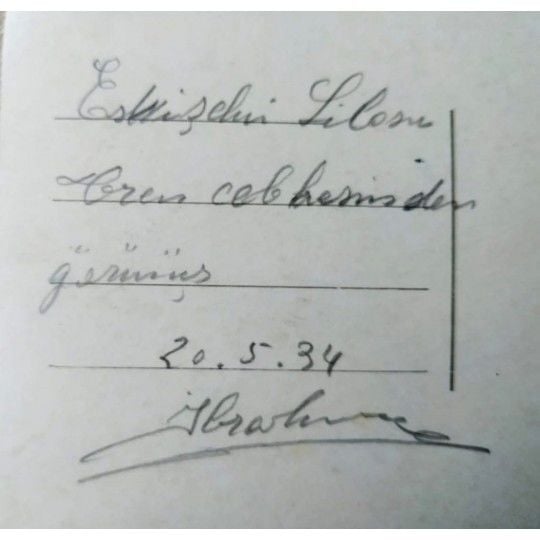 Eskişehir Silosu
Tren cebhesinden
görünüş
20.5.34
İbrahim